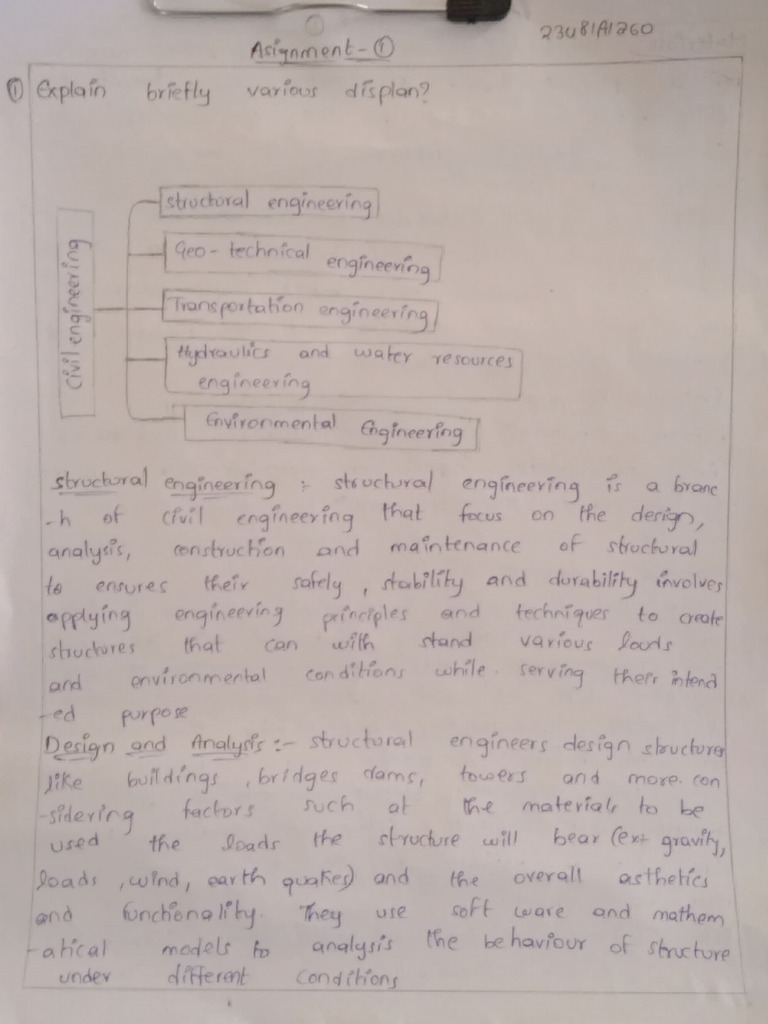 23U81A1260
Asignment - ①
① Explain briefly various displan?
structural engineering
Geo - technical engineering
Civil engineering
Transportation engineering
Hydraulics and water resources
engineering
Environmental Engineering
structural engineering :- structural engineering is a branc
-h of civil engineering that focus on the design,
analysis, construction and maintenance of structural
to ensures their safely, stability and durability involves
applying engineering principles and techniques to create
structures that can with stand various loads
and environmental conditions while serving their intend
-ed purpose
Design and Analysis :- structural engineers design structures
like buildings, bridges dams, towers and more. con
-sidering factors such at the materials to be
used the loads the structure will bear (ex: gravity,
loads, wind, earth quakes) and the overall asthetics
and functionality. They use soft ware and mathem
-atical models to analysis the behaviour of structure
under different conditions